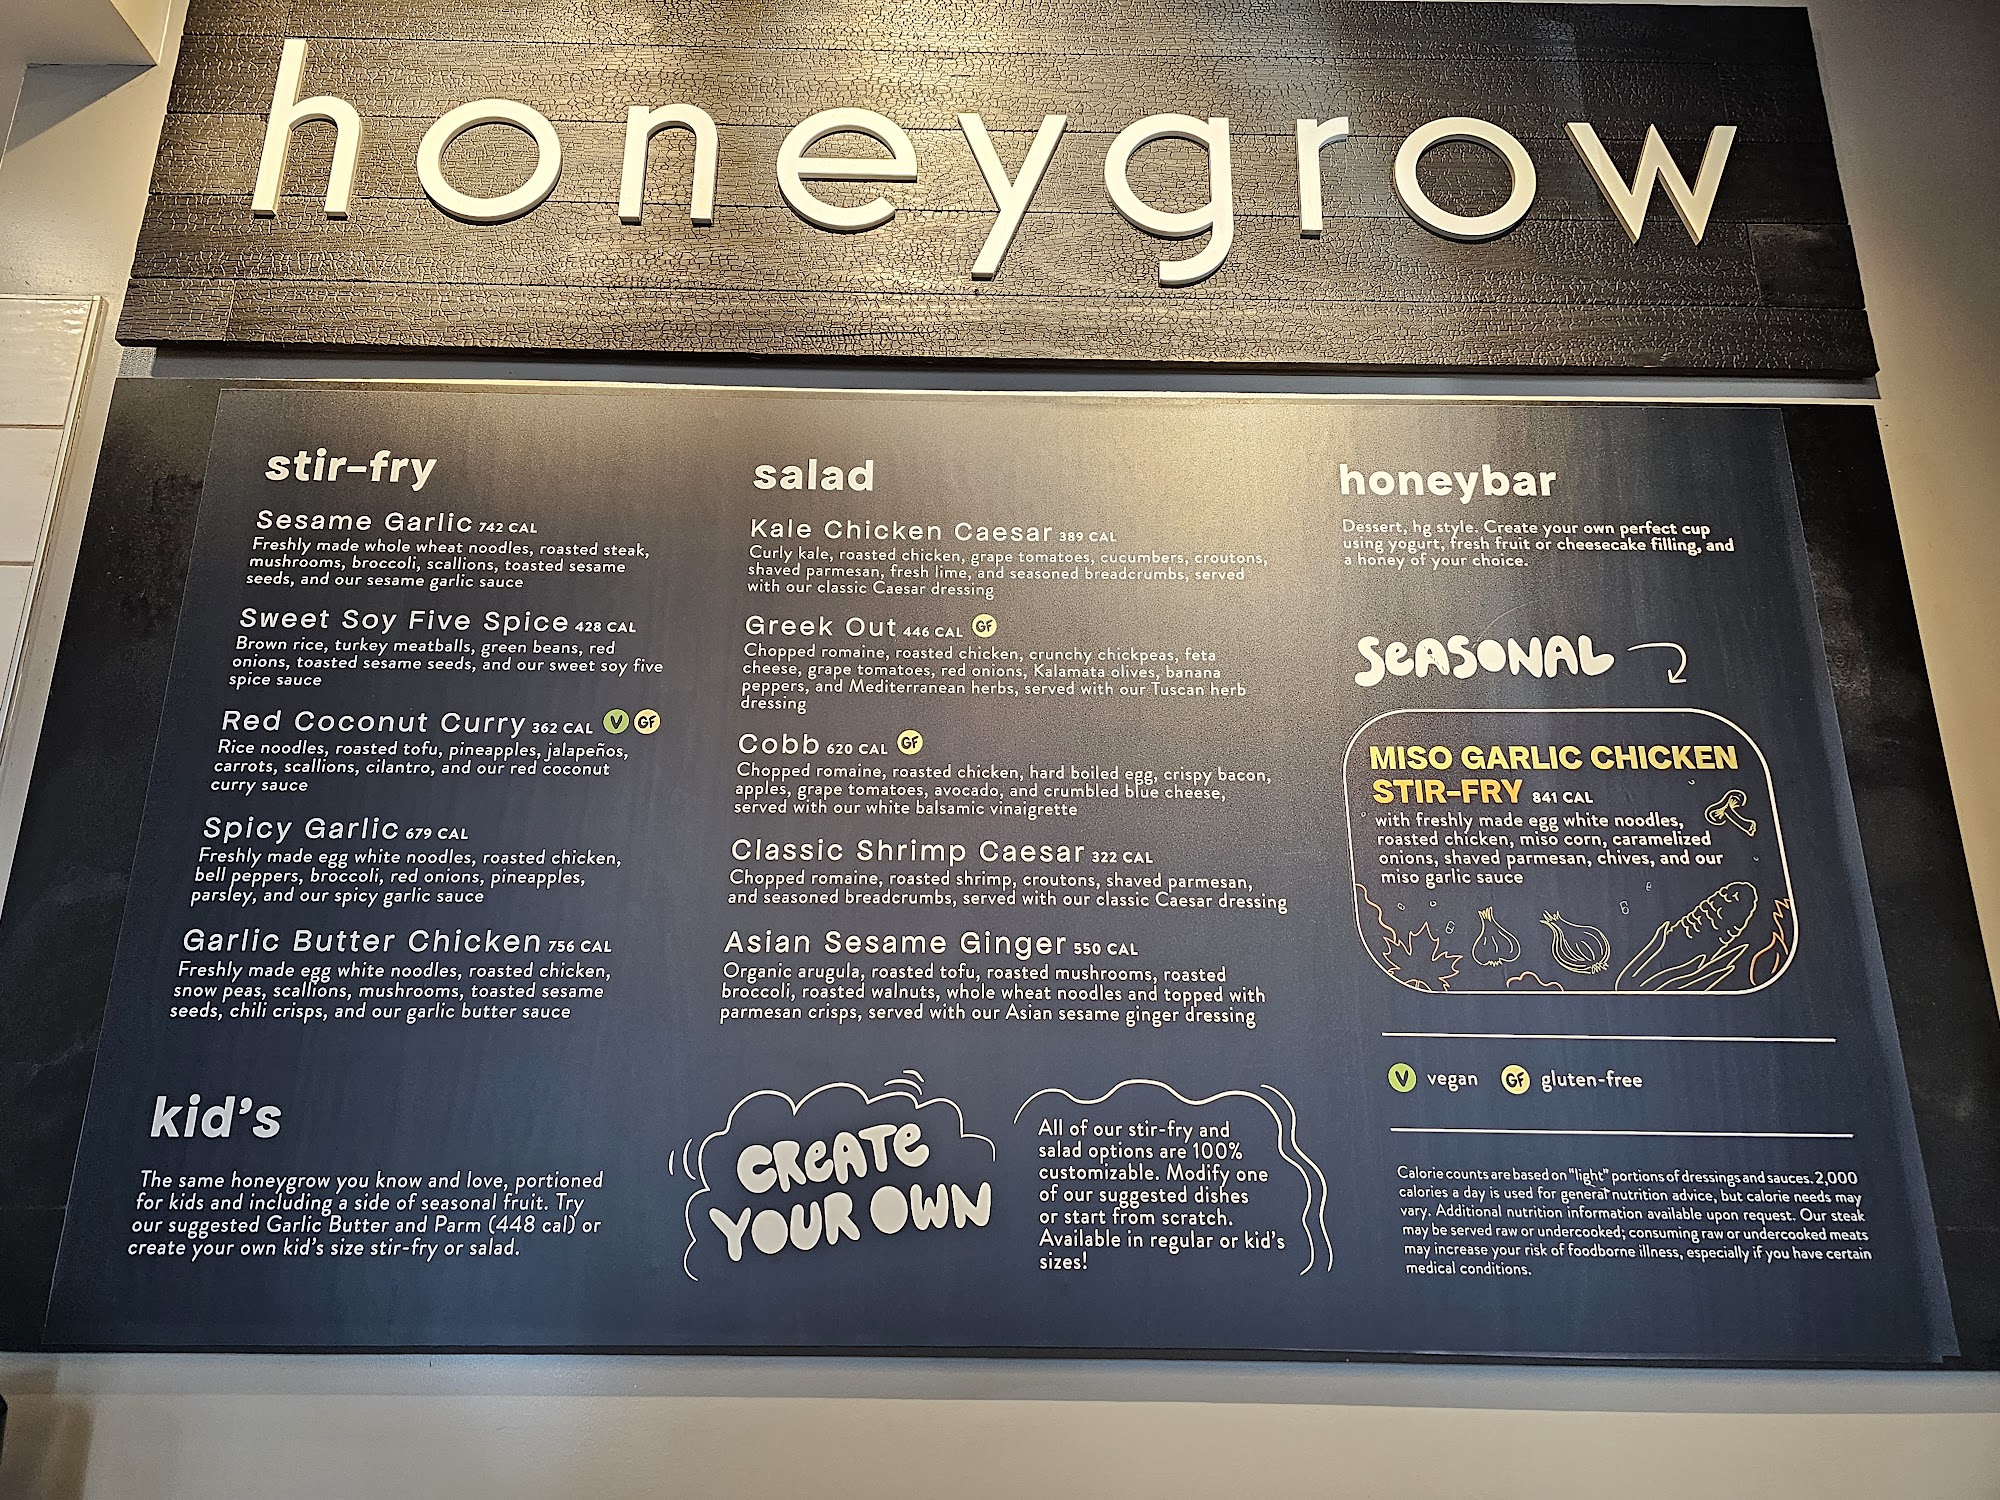 honeygrow
stir-fry
Sesame Garlic 742 CAL
Freshly made whole wheat noodles, roasted steak,
mushrooms, broccoli, scallions, toasted sesame
seeds, and our sesame garlic sauce
Sweet Soy Five Spice 428 CAL
Brown rice, turkey meatballs, green beans, red
onions, toasted sesame seeds, and our sweet soy five
spice sauce
Red Coconut Curry 362 CAL V GF
Rice noodles, roasted tofu, pineapples, jalapeños,
carrots, scallions, cilantro, and our red coconut
curry sauce
Spicy Garlic 679 CAL
Freshly made egg white noodles, roasted chicken,
bell peppers, broccoli, red onions, pineapples,
parsley, and our spicy garlic sauce
Garlic Butter Chicken 756 CAL
Freshly made egg white noodles, roasted chicken,
snow peas, scallions, mushrooms, toasted sesame
seeds, chili crisps, and our garlic butter sauce
kid's
The same honeygrow you know and love, portioned
for kids and including a side of seasonal fruit. Try
our suggested Garlic Butter and Parm (448 cal) or
create your own kid's size stir-fry or salad.
salad
Kale Chicken Caesar 389 CAL
Curly kale, roasted chicken, grape tomatoes, cucumbers, croutons,
shaved parmesan, fresh lime, and seasoned breadcrumbs, served
with our classic Caesar dressing
Greek Out 446 CAL GF
Chopped romaine, roasted chicken, crunchy chickpeas, feta
cheese, grape tomatoes, red onions, Kalamata olives, banana
peppers, and Mediterranean herbs, served with our Tuscan herb
dressing
Cobb 620 CAL GF
Chopped romaine, roasted chicken, hard boiled egg, crispy bacon,
apples, grape tomatoes, avocado, and crumbled blue cheese,
served with our white balsamic vinaigrette
Classic Shrimp Caesar 322 CAL
Chopped romaine, roasted shrimp, croutons, shaved parmesan,
and seasoned breadcrumbs, served with our classic Caesar dressing
Asian Sesame Ginger 550 CAL
Organic arugula, roasted tofu, roasted mushrooms, roasted
broccoli, roasted walnuts, whole wheat noodles and topped with
parmesan crisps, served with our Asian sesame ginger dressing
CREATE
YOUR OWN
All of our stir-fry and
salad options are 100%
customizable. Modify one
of our suggested dishes
or start from scratch.
Available in regular or kid's
sizes!
honeybar
Dessert, hg style. Create your own perfect cup
using yogurt, fresh fruit or cheesecake filling, and
a honey of your choice.
SEASONAL
MISO GARLIC CHICKEN
STIR-FRY 841 CAL
with freshly made egg white noodles,
roasted chicken, miso corn, caramelized
onions, shaved parmesan, chives, and our
miso garlic sauce
V vegan GF gluten-free
Calorie counts are based on "light" portions of dressings and sauces. 2,000
calories a day is used for general nutrition advice, but calorie needs may
vary. Additional nutrition information available upon request. Our steak
may be served raw or undercooked; consuming raw or undercooked meats
may increase your risk of foodborne illness, especially if you have certain
medical conditions.